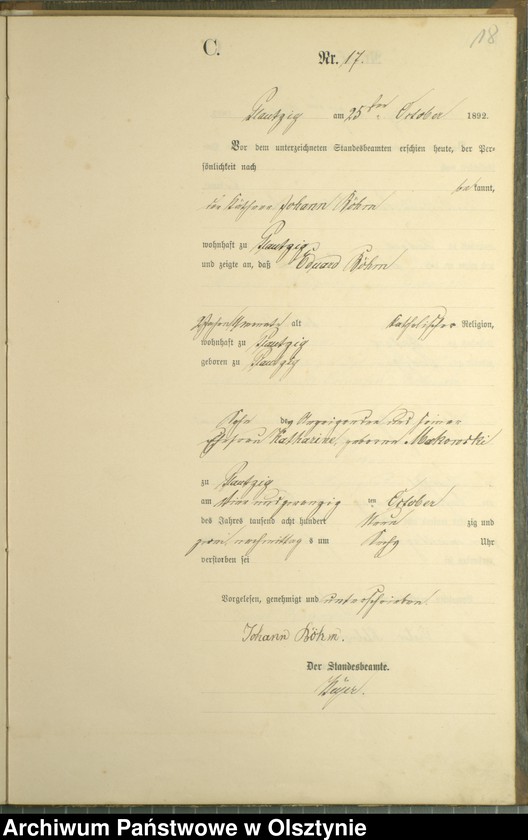 18
C.
Nr. 17.
Plautzig am 25ten October 1892.
Vor dem unterzeichneten Standesbeamten erschien heute, der Per-
sönlichkeit nach
bekannt,
die Käthner Johann Böhm
wohnhaft zu Plautzig
und zeigte an, daß Eduard Böhm
alt katholischer Religion,
wohnhaft zu Plautzig
geboren zu Plautzig
Sohn des Anzeigenden und seiner
Ehefrau Katharine, geborne Makowski
zu Plautzig
am vier und zwanzig ten October
des Jahres tausend acht hundert Neun zig und
zwei nachmittag s um Sechs Uhr
verstorben sei
Vorgelesen, genehmigt und unterschrieben
Johann Böhm.
Der Standesbeamte.
Archiwum Państwowe w Olsztynie